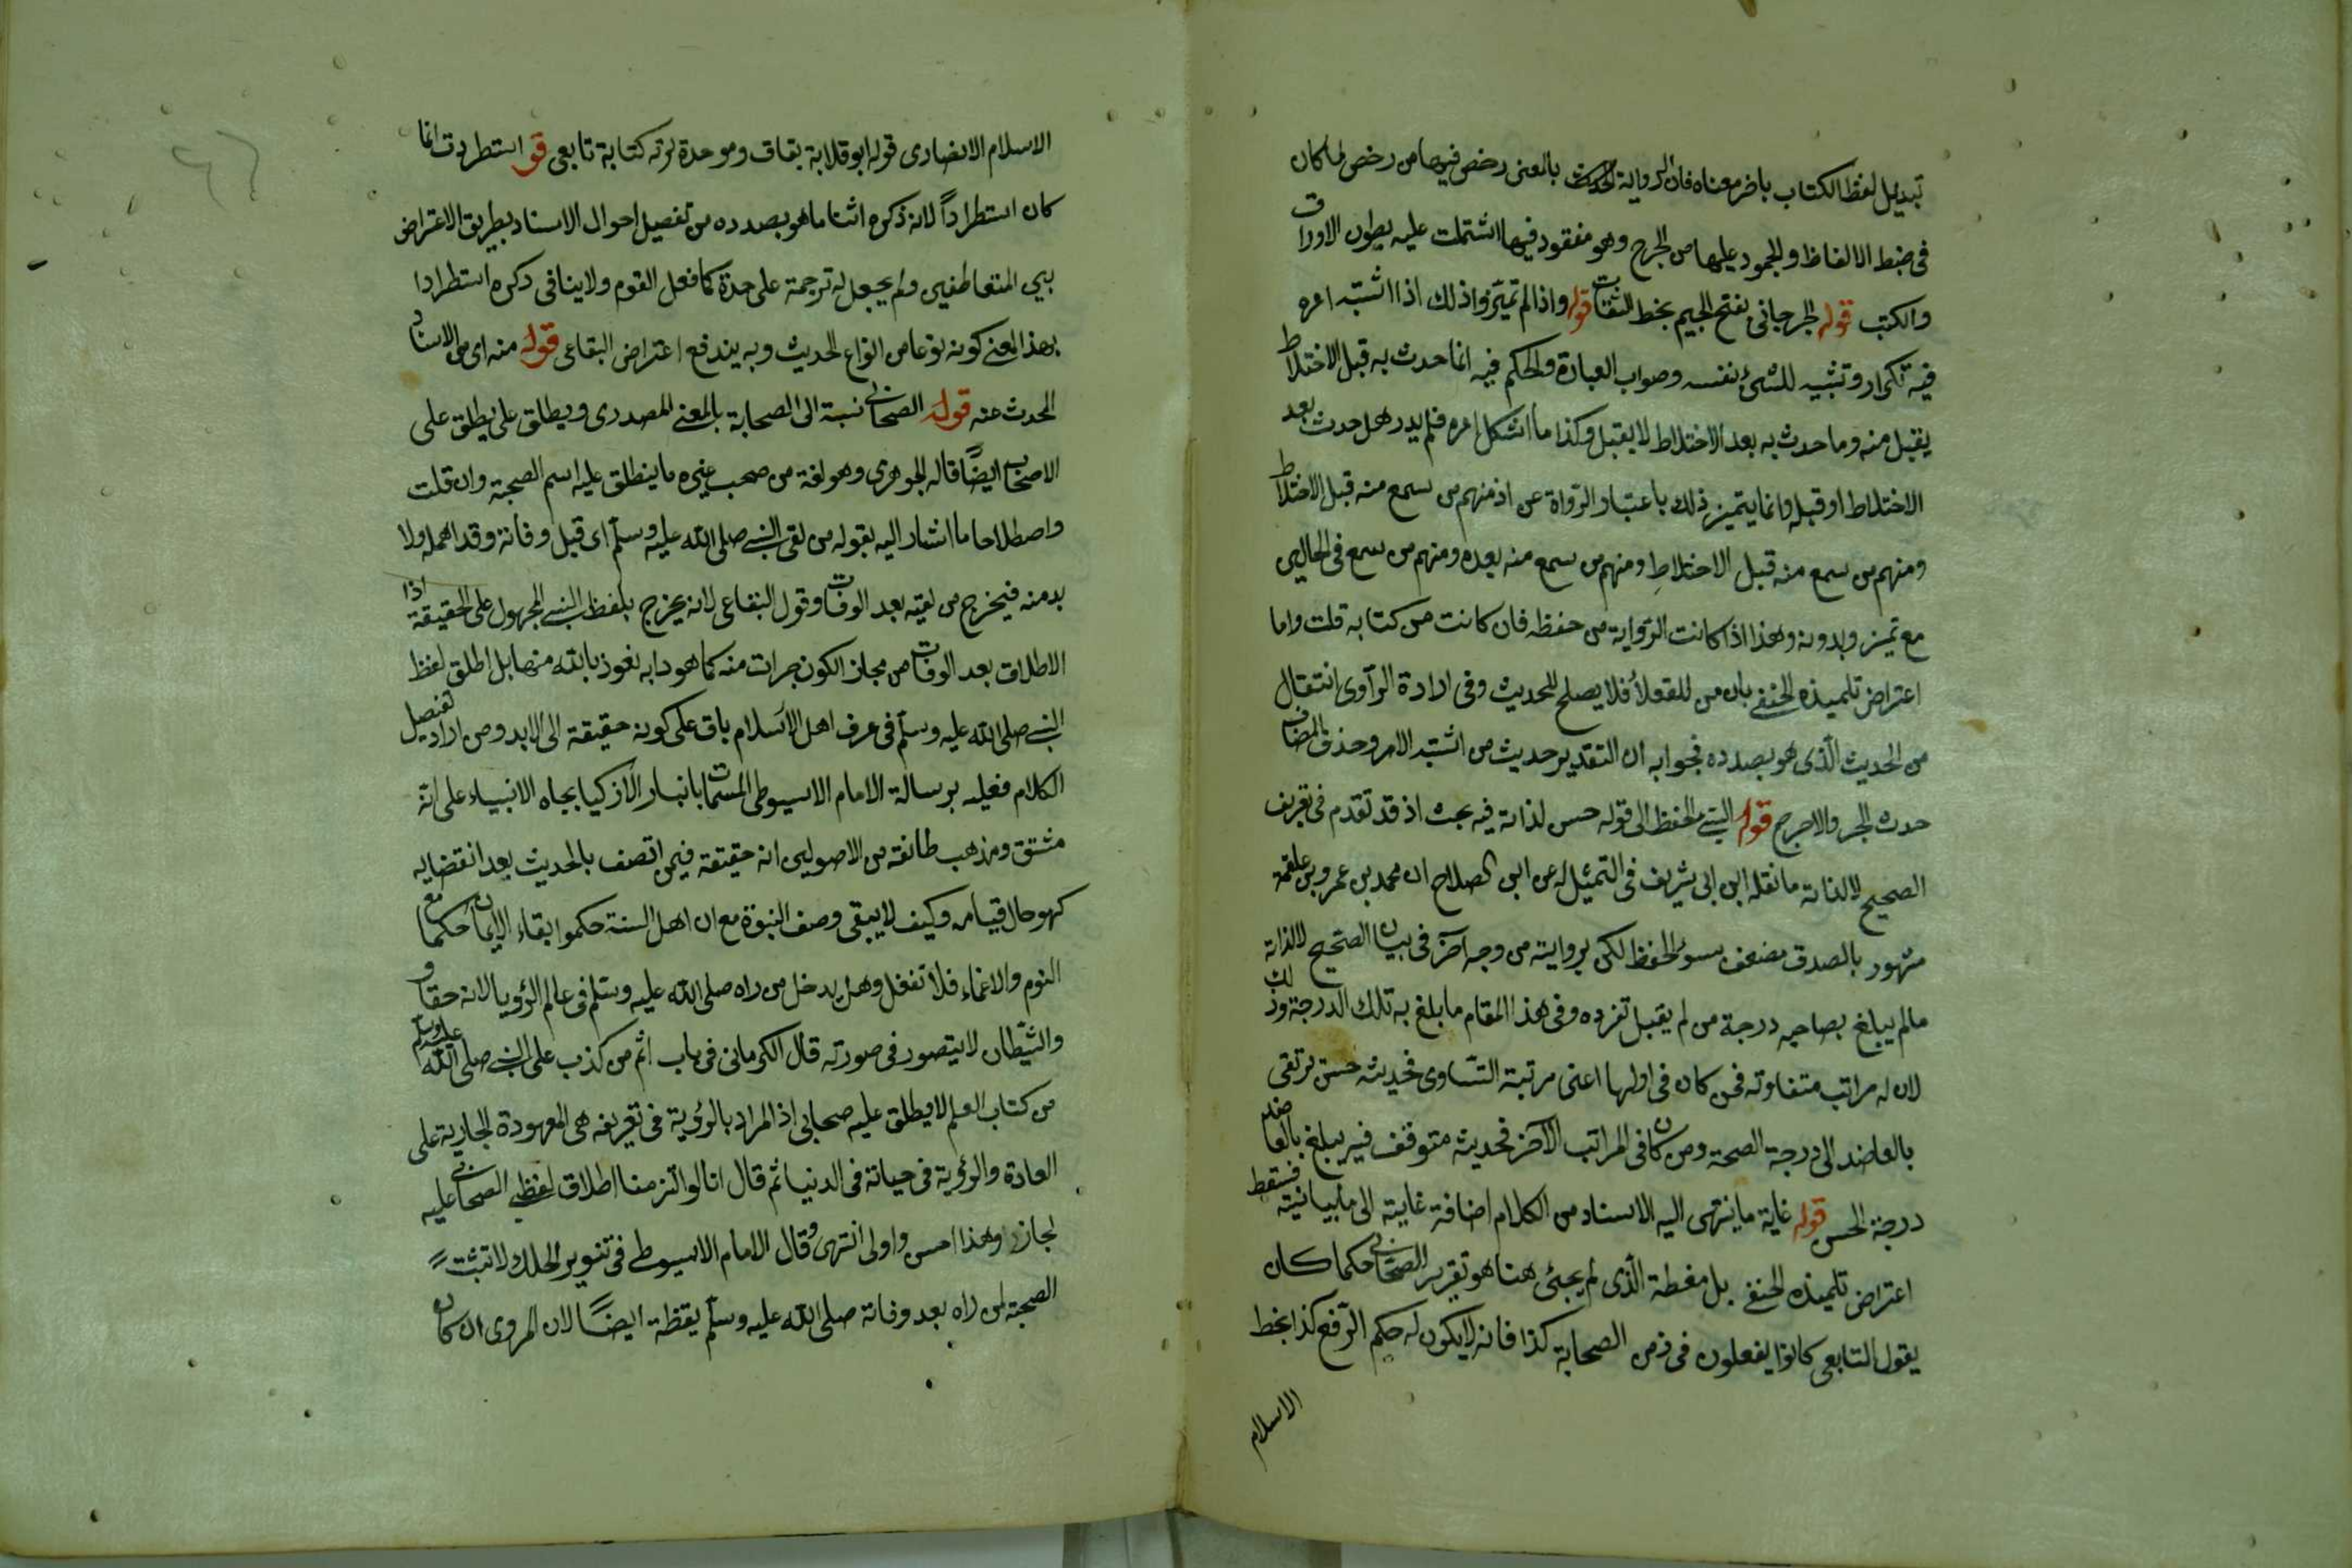 تبديل لفظ الكتاب باخر معناه فان الرواية الحديث بالمعنى رخص فيها من رخص لما كان
في ضبط الالفاظ والجمود عليها من الحرج وهو مفقود فيها اشتملت عليه بطون الاوراق
والكتب قوله الجرجاني بفتح الجيم بخط الثقات قوله واذا لم تميز واذلك اذا اشتبه امره
فيه تكرار وتشبيه للشئ بنفسه وصواب العبارة والحكم فيه انما حدث به قبل الاختلاط
يقبل منه وما حدث به بعد الاختلاط لا يقبل وكذا ما اشكل امره فلم يدر هل حدث بعد
الاختلاط او قبله وانما يتميز ذلك باعتبار الرواة عن اذ منهم من سمع منه قبل الاختلاط
ومنهم من سمع منه قبل الاختلاط ومنهم من سمع منه بعده ومنهم من سمع في الحالين
مع تميز وبدونه وهذا اذا كانت الرواية من حفظه فان كانت من كتابه قلت واما
اعتراض تلميذه الحنفي بان من للعقلأ فلا يصلح للحديث وفي ارادة الرآوى انتقال
من الحديث الذى هو بصدده فجوابه ان التقدير حديث من اشتبه الامر وحذف المضاف
حدث الجر والاجرح قوله السيئ الحفظ الى قوله حسن لذاته فيه بحث اذ قد تقدم في تعريف
الصحيح لا لذاته ما نقله ابن ابي شريف في التمثيل له عن ابن الصلاح ان محمد بن عمرو بن علقمة
مشهور بالصدق مضعف بسوء الحفظ لكن بروايته من وجه آخر في بيان الصحيح لا لذاته
مالم يبلغ بصاحبه درجة من لم يقبل تفرده وفي هذا المقام ما بلغ به تلك الدرجة وذلك
لان له مراتب متفاوته فمن كان في اولها اعنى مرتبة التساوى فحديثه حسن ترتقى
بالعاضد الى درجة الصحة ومن كان في المراتب الآخر فحديثه متوقف فيه يبلغ بالعاضد
درجة الحسن قوله غاية ما ينتهى اليه الاسناد من الكلام اضافة غايته الى ما بيانيته فسقط
اعتراض تلميذه الحنفي بل مغطة الذى لم يجئ هنا هو تقرير الصحابي حكما كان
يقول التابعى كانوا يفعلون في زمن الصحابة كذا فانه لا يكون له حكم الرفع كذا بخط
الاسلام
الاسلام الانصارى قوله ابو قلابة بقاف وموحدة كتابة تابعى قو استطردت انما
كان استطراداً لانه ذكره اثنا ما هو بصدده من تفصيل احوال الاسناد بطريق الاعتراض
بين المتعاطفين ولم يجعل له ترجمة على حدة كما فعل القوم ولا ينافى ذكره استطرادا
بهذا المعنى كونه نوعا من انواع الحديث وبه يندفع اعتراض البقاعى قوله منه اى من الاسناد
المحدث عنه قوله الصحابي نسبة الى الصحابة بالمعنى المصدرى ويطلق على يطلق على
الاصحاب ايضًا قاله الجوهرى وهو لغة من صحب غيره ما ينطلق عليه اسم الصحبة وان قلت
واصطلاحا ما اشار اليه بقوله من لقى النبي صلى الله عليه وسلم اى قبل وفاته وقد اهمله ولا
بد منه فيخرج من لقيه بعد الوفات وقول البقاعى لانه يخرج بلفظ النبي المجهول على الحقيقة اذا
الاطلاق بعد الوفات من مجاز الكون جرات منه كما هو دابه نعوذ بالله منها بل اطلق لفظ
النبي صلى الله عليه وسلم في عرف اهل الاسلام باق على كونه حقيقة الى الابد ومن اراد تفصيل
الكلام فعليه برسالة الامام الاسيوطى المسمات بانباء الاذكيا بحياه الانبياء على انه
مشتق ومذهب طائفة من الاصوليين انه حقيقة فيمن اتصف بالحديث بعد انقضايه
كهو حال قيامه وكيف لا يبقى وصف النبوة مع ان اهل السنة حكموا بقاء الايمان حكما مع
النوم والاغماء فلا تغفل وهل يدخل من راه صلى الله عليه وسلم في عالم الرؤيا لانه حقا و
والشيطان لا يتصور في صورته قال الكرماني في باب اثم من كذب على النبي صلى الله عليه وسلم
من كتاب العلم لا يطلق عليه صحابي اذ المراد بالرؤية في تعريفه هى المعهودة الجارية على
العادة والرؤية في حياته في الدنيا ثم قال انا لو التزمنا اطلاق لفظ الصحابي عليه
لجاز وهذا احسن واولى انتهى وقال الامام الاسيوطى في تنوير الحلك لا تثبت
الصحبة لمن راه بعد وفاته صلى الله عليه وسلم يقظة ايضًا لان المروى ان كان